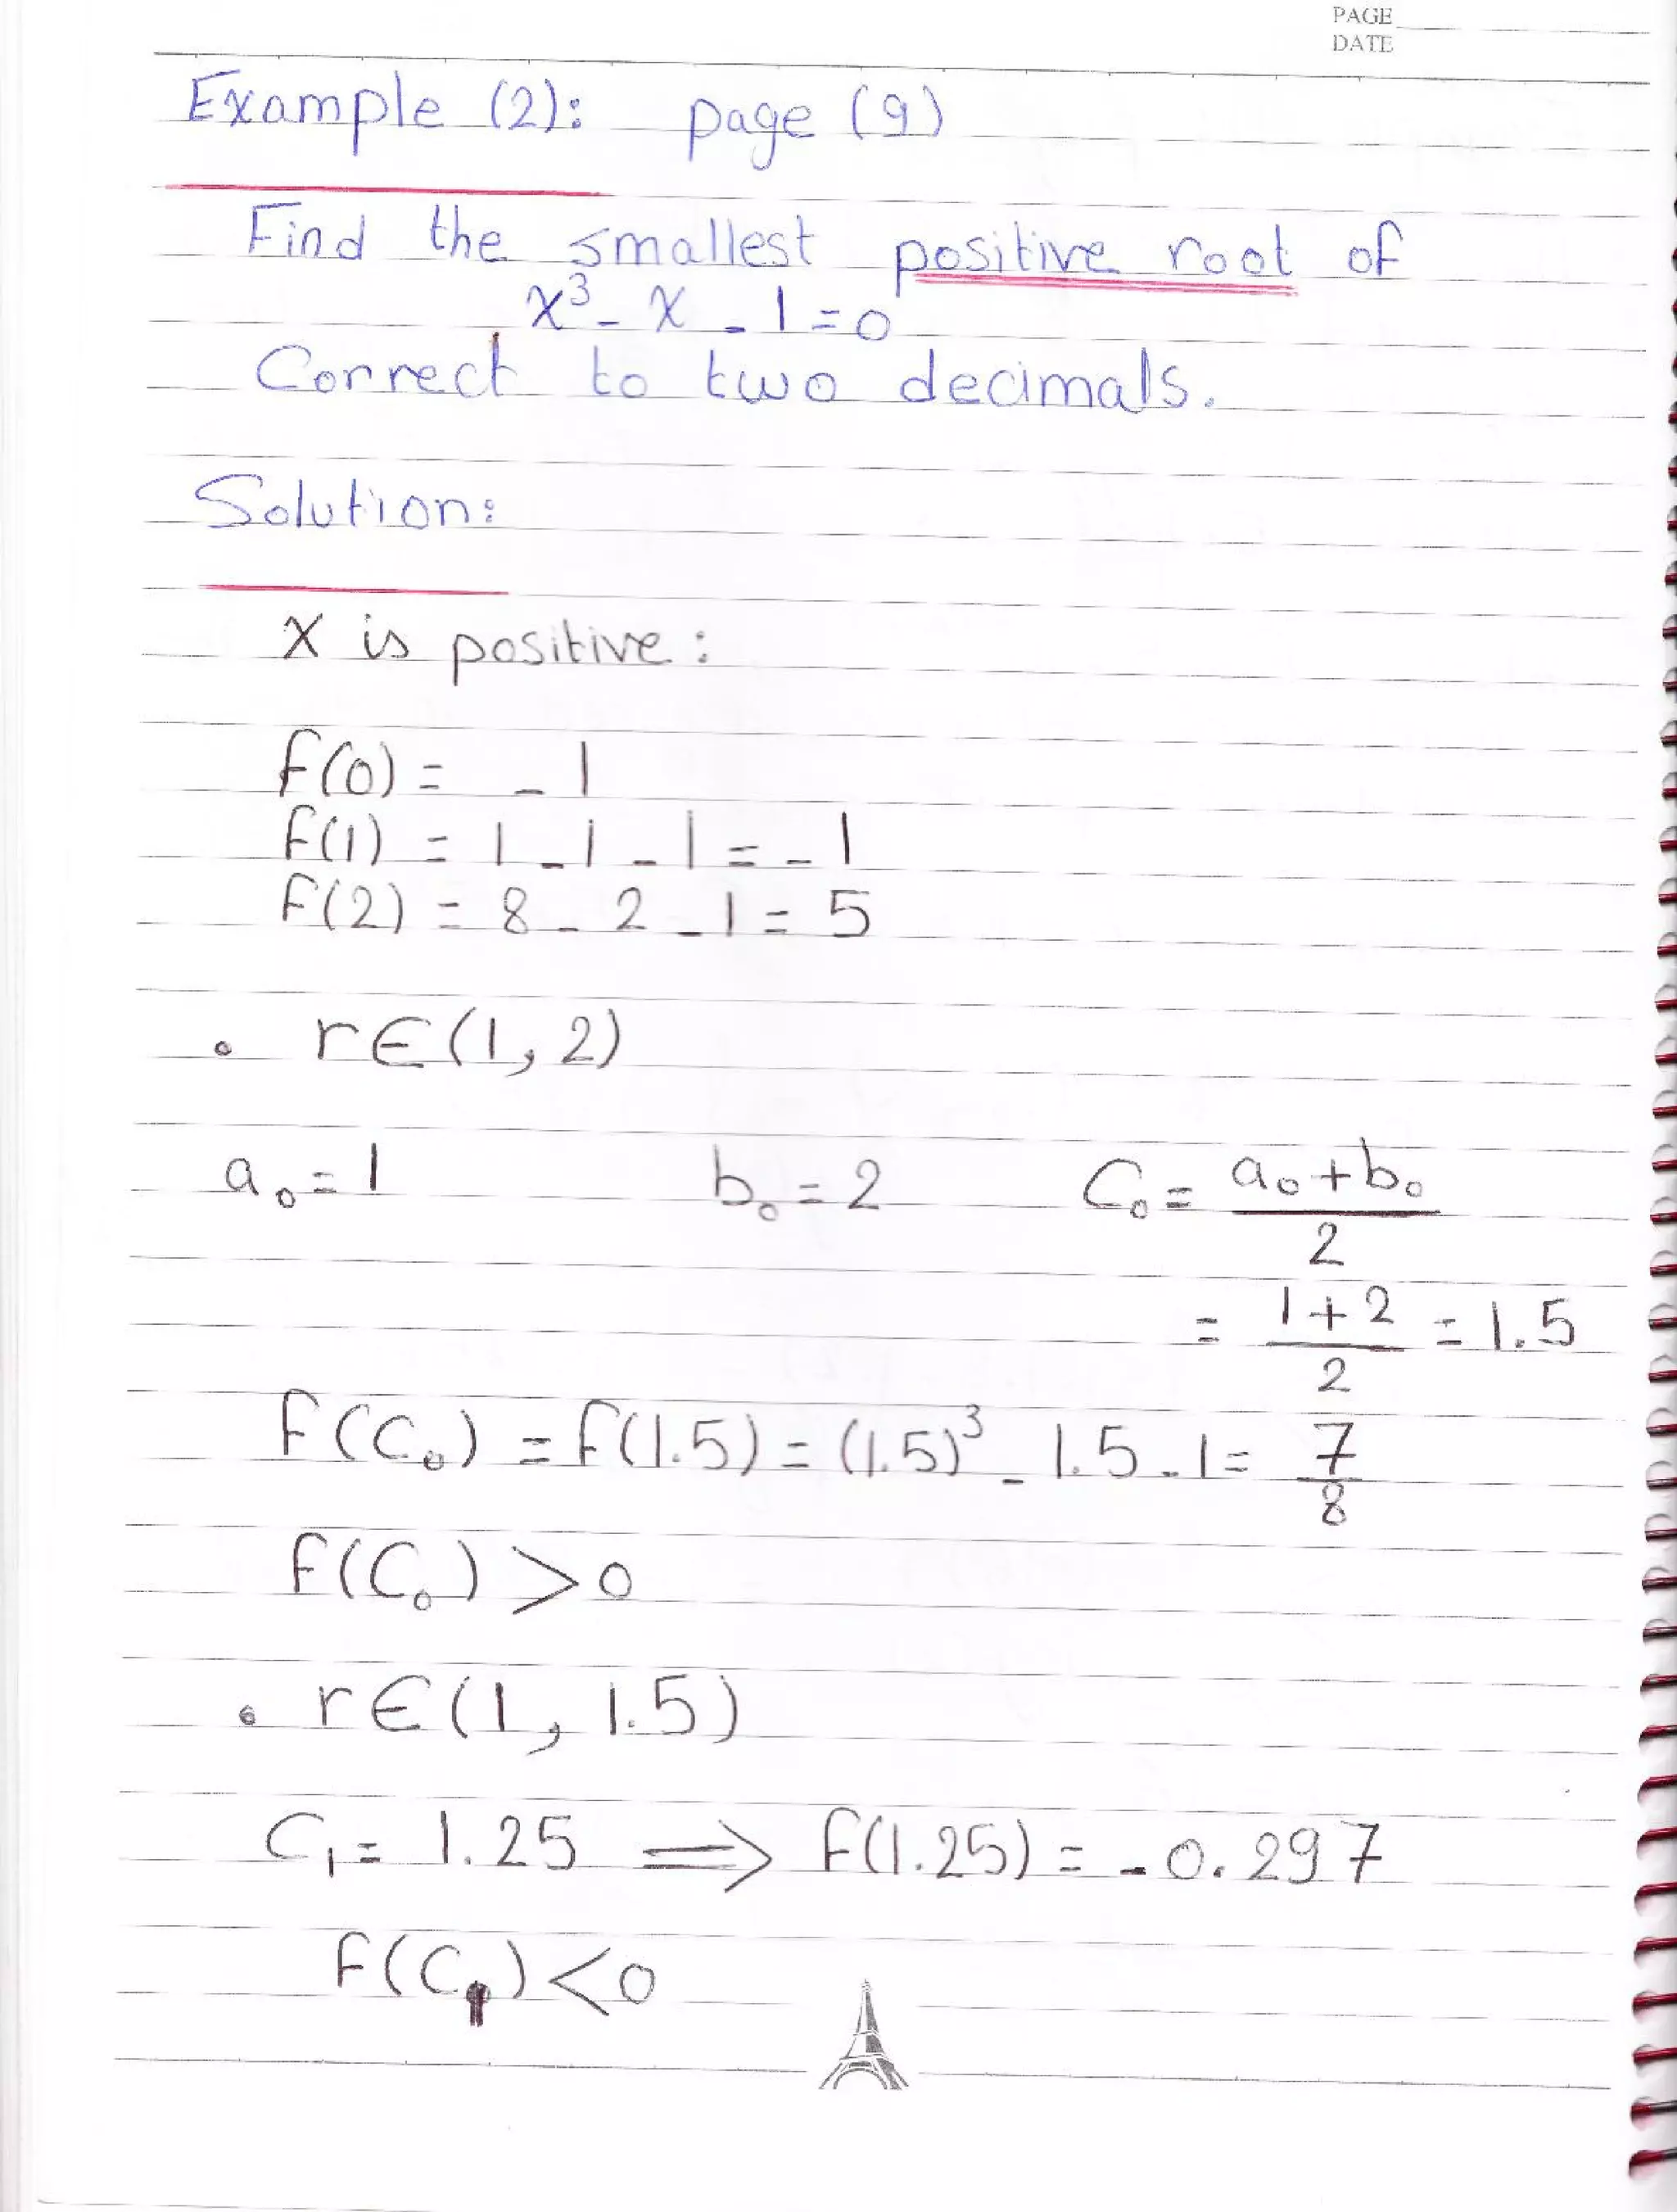 PAGE
DATE
Example (2): page (9)
Find the smallest positive root of
x³ - x - 1 = 0
Correct to two decimals.
Solution:
x is positive:
f(0) = -1
f(1) = 1 - 1 - 1 = -1
f(2) = 8 - 2 - 1 = 5
• r∈(1, 2)
a₀ = 1 b₀ = 2 C₀ = a₀ + b₀ / 2
= 1 + 2 / 2 = 1.5
f(C₀) = f(1.5) = (1.5)³ - 1.5 - 1 = 7/8
f(C₀) > 0
• r∈(1, 1.5)
C₁ = 1.25 ⟹ f(1.25) = -0.297
f(C₁) < 0